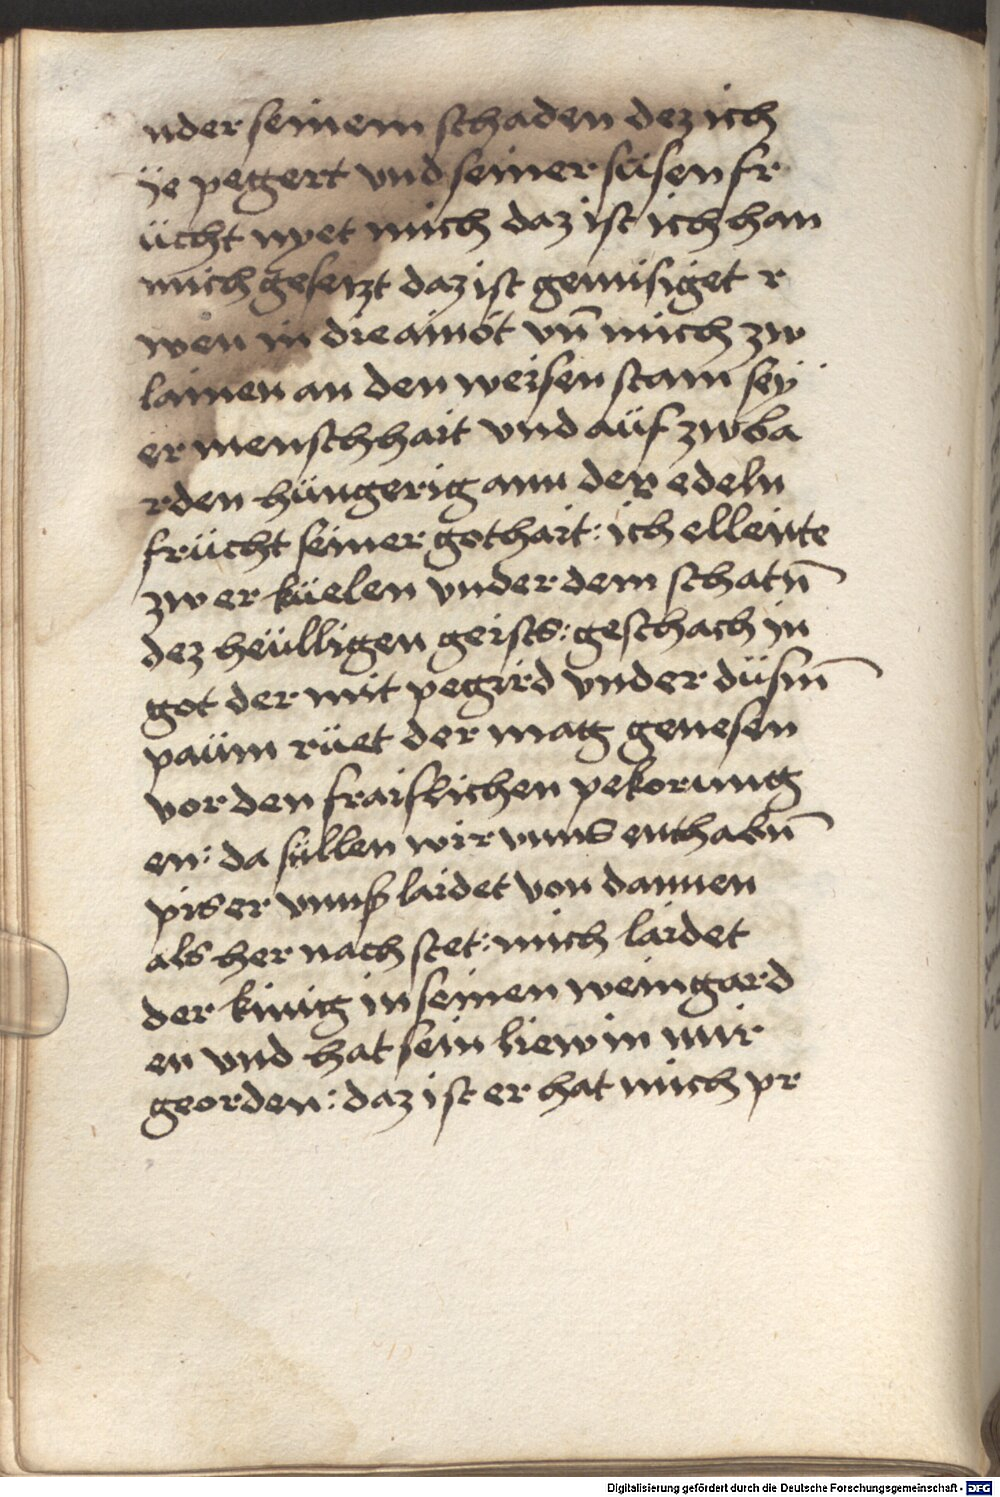 nder seinem schaden dez ich
ÿe pegert vnd seiner süsen fr
ücht nyet mich daz ist ich han
mich gesetzt daz ist gemüsiget r
wen in die ainöt vn̄ mich zw
lainen an den weisen stam sey
er menschhait vnd aüf zwba
rden hüngerig ann der edeln
frücht seiner gothait: ich ellente
zw er küelen vnder dem schatn̄
dez heülligen geists: geschach in
got der mit pegird vnder düsm̄
paüm rüet der mag genesen
vor den fraislichen pekorung
en: da süllen wir vnns enthabn̄
pis er vnnß laidet von dannen
als her nach stet: mich laidet
der kinig in seinen weingard
en vnd hat sein liew in mir
georden: daz ist er hat mich pr
Digitalisierung gefördert durch die Deutsche Forschungsgemeinschaft - DFG